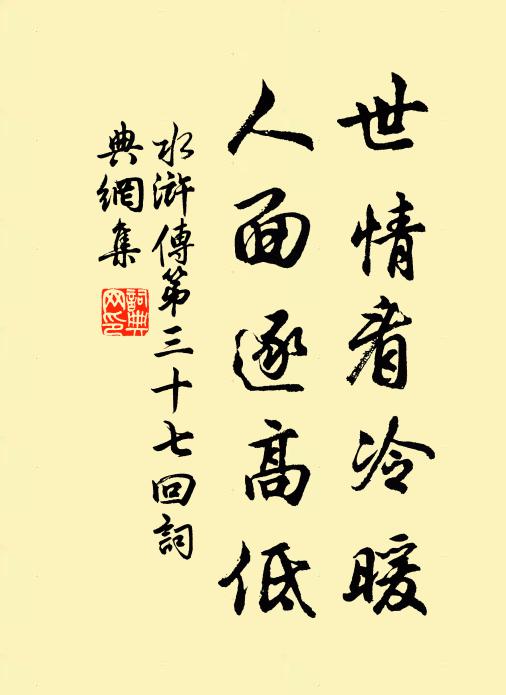 世情看冷暖
人面逐高低
水滸傳第三十七回詞
典網集
詞典
网印